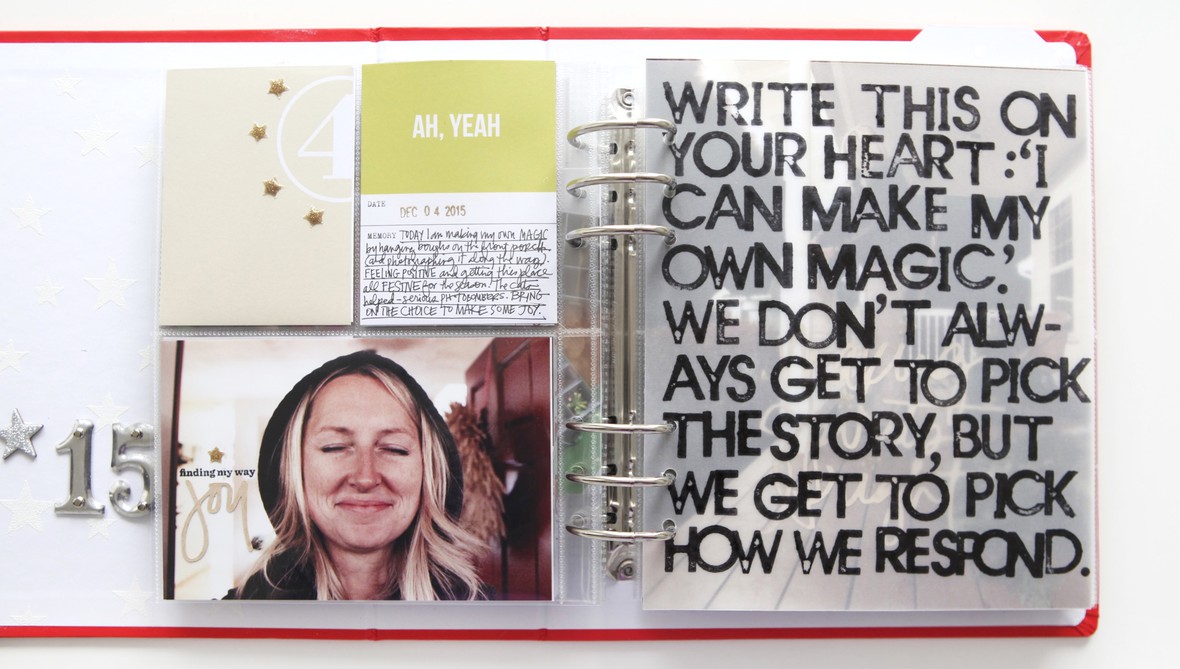 4
AH, YEAH
DATE
DEC 04 2015
MEMORY TODAY I am making my own MAGIC
by hanging boughs on the front porch
(and photographing it along the way).
FEELING POSITIVE and getting this place
all FESTIVE for the season! The cats
helped - serious PHOTOBOMBERS. BRING
ON THE CHOICE TO MAKE SOME JOY.
15
finding my way
joy
WRITE THIS ON
YOUR HEART :'I
CAN MAKE MY
OWN MAGIC.'
WE DON'T ALW-
AYS GET TO PICK
THE STORY, BUT
WE GET TO PICK
HOW WE RESPOND.